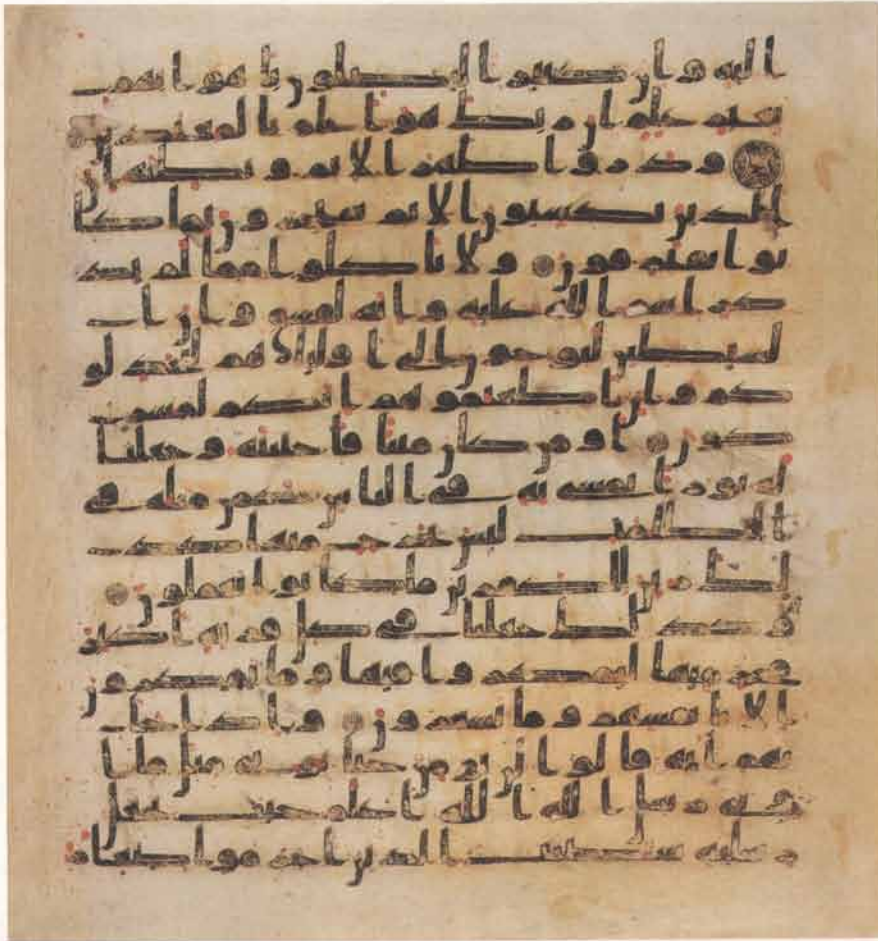 اليه وان كثيرا ليضلون باهوائهم
بغير علم ان ربك هو اعلم بالمعتدين
وذروا ظهر الاثم وبطنه ان
الذين يكسبون الاثم سيجزون بما كا
نوا يقترفون ولا تاكلوا مما لم يذ
كر اسم الله عليه وانه لفسق وان ا
لشيطين ليوحون الى اوليائهم ليجدلو
كم وان اطعتموهم انكم لمشر
كون اومن كان ميتا فاحيينه وجعلنا
له نورا يمشي به في الناس كمن مثله في
الظلمت ليس بخرج منها كذ
لك زين للكفرين ما كانوا يعملون
وكذلك جعلنا في كل قرية اكبر
مجرميها ليمكروا فيها وما يمكرون
الا بانفسهم وما يشعرون واذا جا
تهم اية قالوا لن نؤمن حتى نؤتى مثل ما ا
وتي رسل الله الله اعلم حيث يجعل
رسلته سيصيب الذين اجرموا صغا